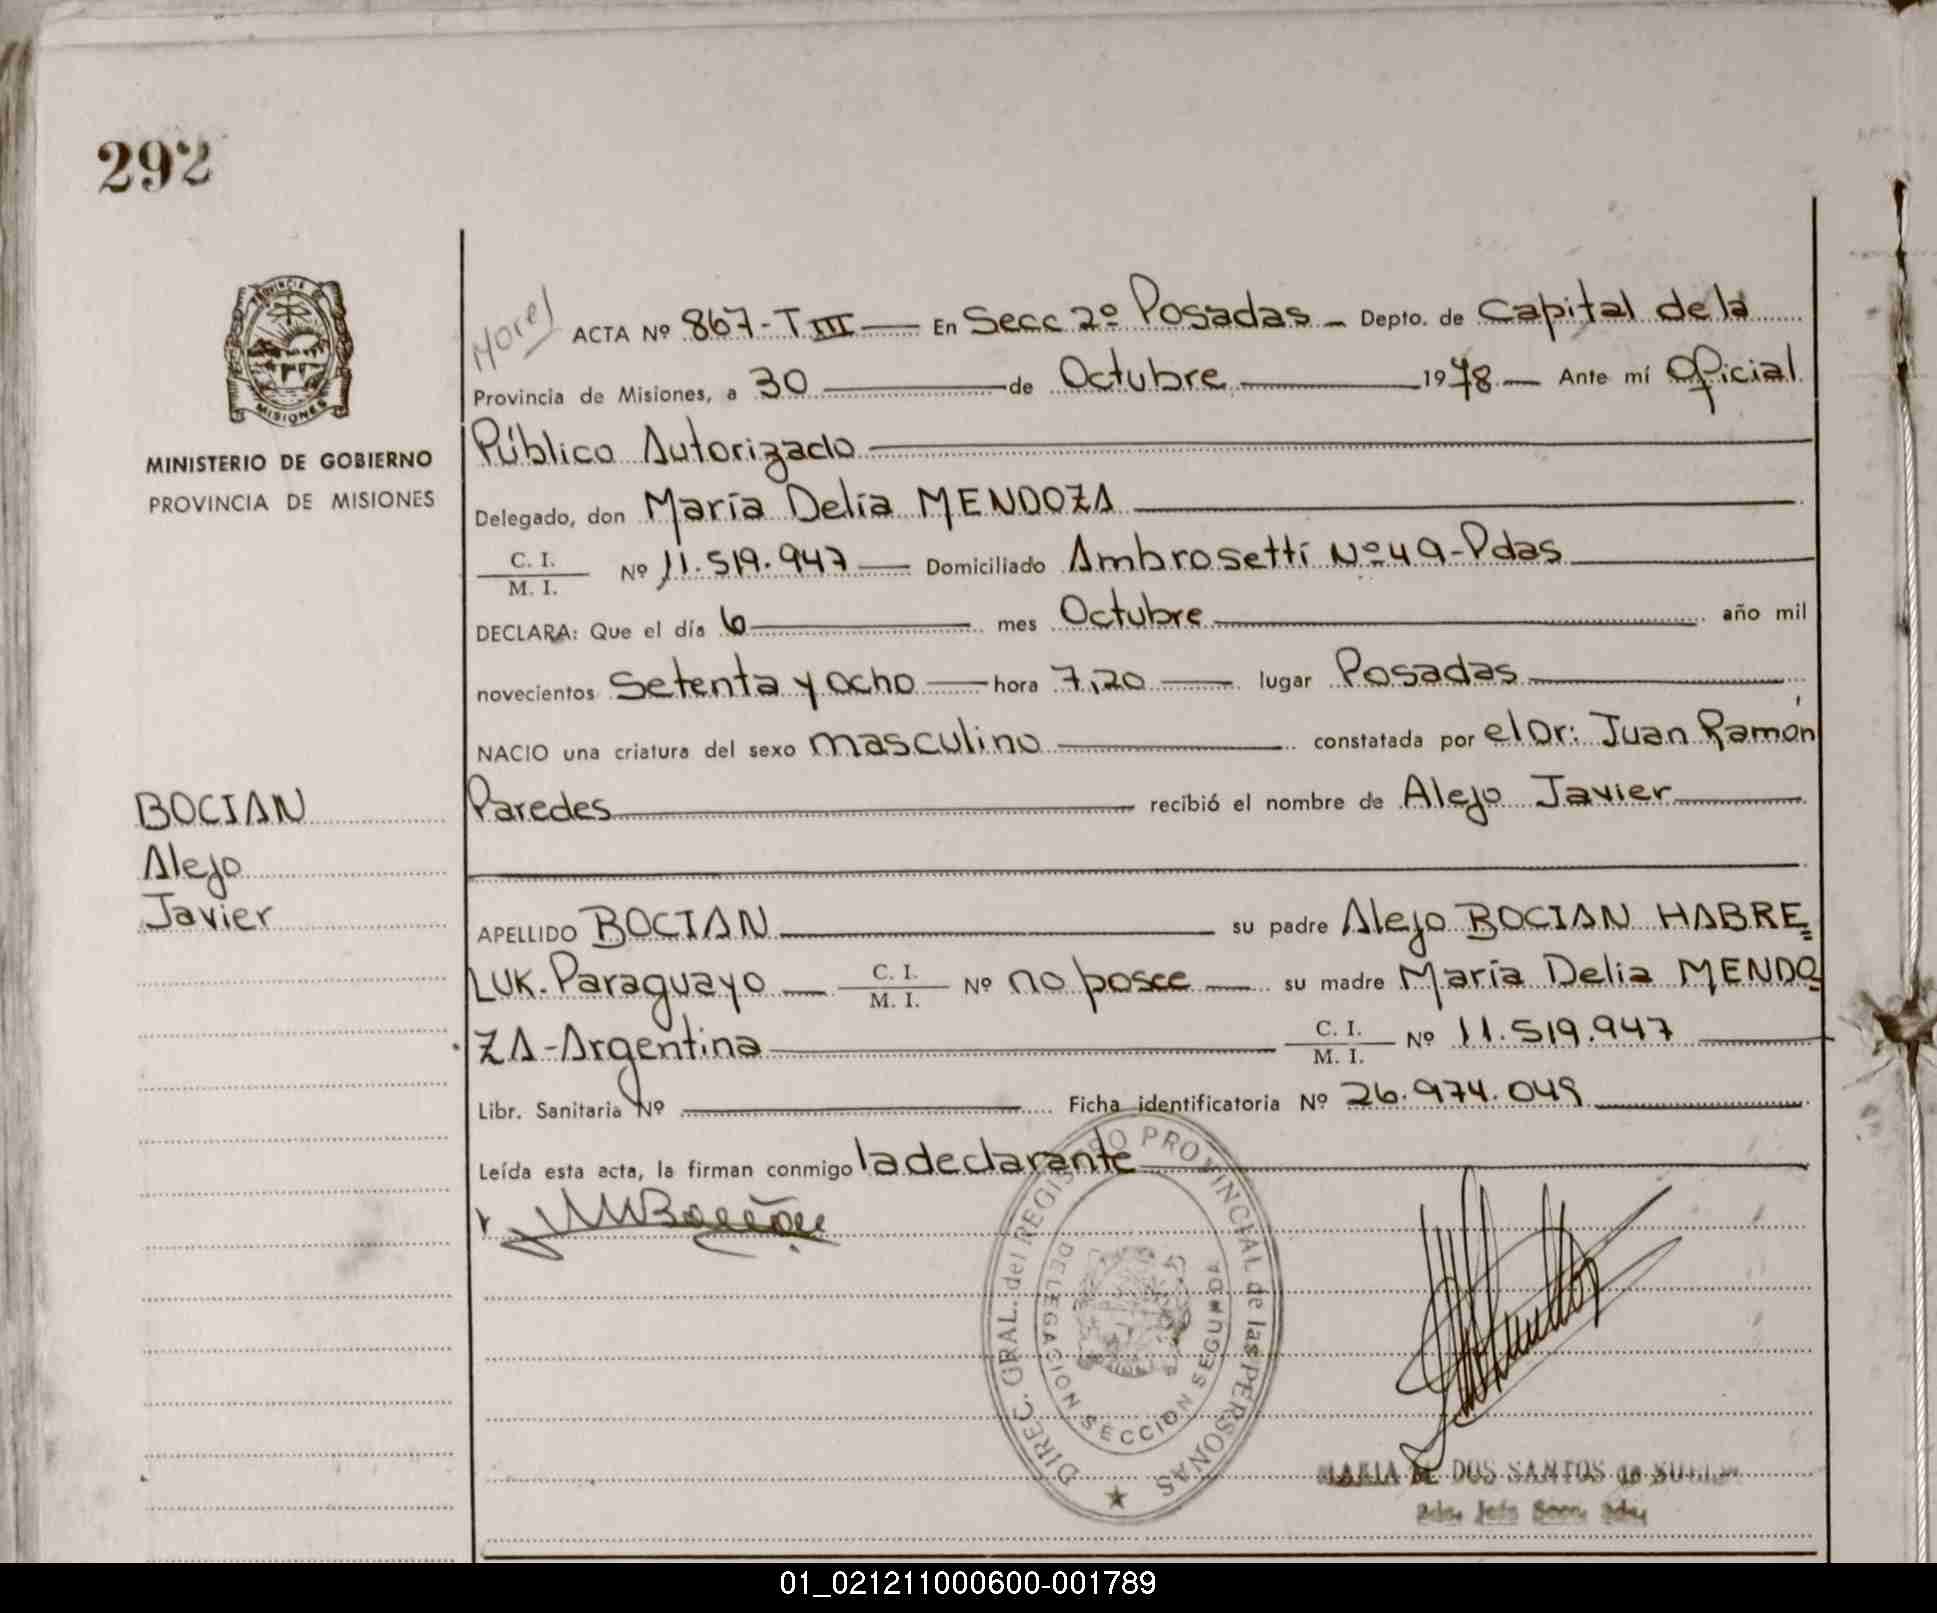 292
Morel
ACTA Nº 867-T III — En Secc 2º Posadas — Depto. de Capital de la
Provincia de Misiones, a 30 — de Octubre — 1978 — Ante mí Oficial
Público Autorizado
MINISTERIO DE GOBIERNO
PROVINCIA DE MISIONES
PROVINCIA
MISIONES
Delegado, don María Delia MENDOZA
C. I.
M. I.
Nº 11.519.947 — Domiciliado Ambrosetti Nº 49-Pdas
DECLARA: Que el día 6 — mes Octubre — año mil
novecientos Setenta y ocho — hora 7,20 — lugar Posadas
NACIO una criatura del sexo masculino — constatada por el Dr: Juan Ramón
Paredes — recibió el nombre de Alejo Javier
BOCIAN
Alejo
Javier
APELLIDO BOCIAN — su padre Alejo BOCIAN HABRE=
LUK. Paraguayo — C. I. / M. I. Nº no posee — su madre María Delia MENDO
ZA-Argentina — C. I. / M. I. Nº 11.519.947
Libr. Sanitaria Nº — Ficha identificatoria Nº 26.974.049
Leída esta acta, la firman conmigo la declarante
DIREC. GRAL. del REGISTRO PROVINCIAL de las PERSONAS
DELEGACION SECCION SEGUNDA
MARIA DE DOS SANTOS de
01_021211000600-001789